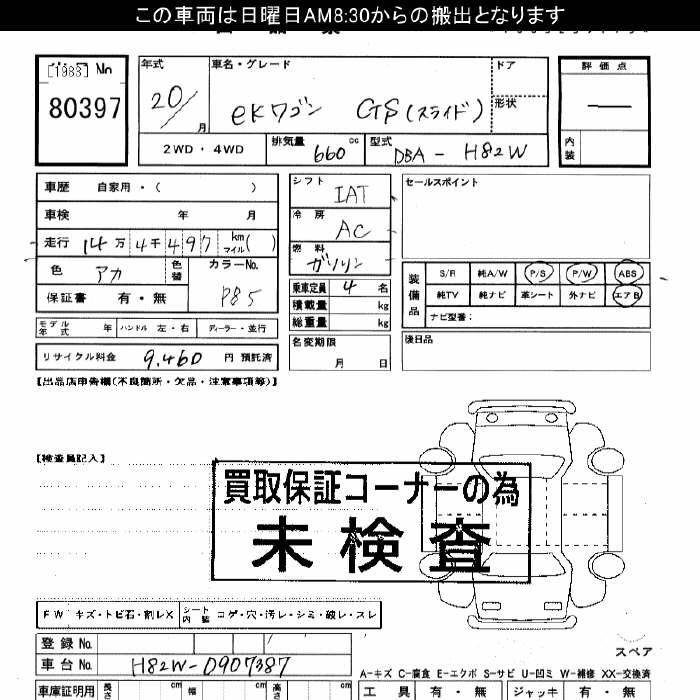 この車両は日曜日AM8:30からの搬出となります
[1983] No
80397
年式 車名・グレード ドア 評価点
20/ 月 eKワゴン GS(スライド) 形状
2WD・4WD 排気量 660 cc 型式 DBA-H82W 内装
車歴 自家用・( )
車検 年 月
走行 14万4千497 km マイル( )
色 アカ 色替 カラーNo. P85
保証書 有・無
モデル年式 年 ハンドル 左・右 ディーラー・並行
リサイクル料金 9,460 円 預託済
シフト IAT
冷房 AC
燃料 ガソリン
乗車定員 4 名
積載量 kg
総重量 kg
名変期限 月 日
セールスポイント
装備品 S/R 純A/W P/S P/W ABS
純TV 純ナビ 革シート 外ナビ エアB
ナビ型番:
後日品
【出品店申告欄(不良箇所・欠品・注意事項等)】
【検査員記入】
買取保証コーナーの為
未検査
FW キズ・トビ石・割レX シート内装 コゲ・穴・汚レ・シミ・破レ・スレ
登録No.
車台No. H82W-0907387
スペア
A-キズ C-腐食 E-エクボ S-サビ U-凹ミ W-補修 XX-交換済
車庫証明用 長さ cm 幅 cm 高さ cm 工具 有・無 ジャッキ 有・無